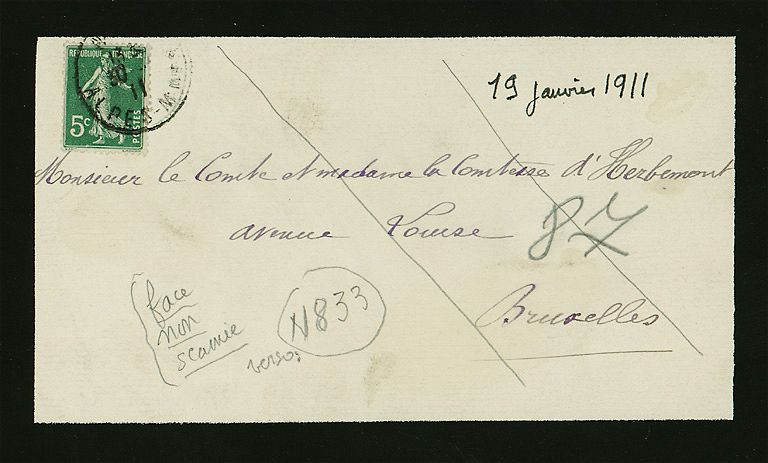 REPUBLIQUE FRANCAISE
5c
POSTES
ALPES-Mmes
19 janvier 1911
Monsieur le Comte et madame la Comtesse d'Herbemont
avenue Louise
87
Bruxelles
face
non
scannée
verso:
N833